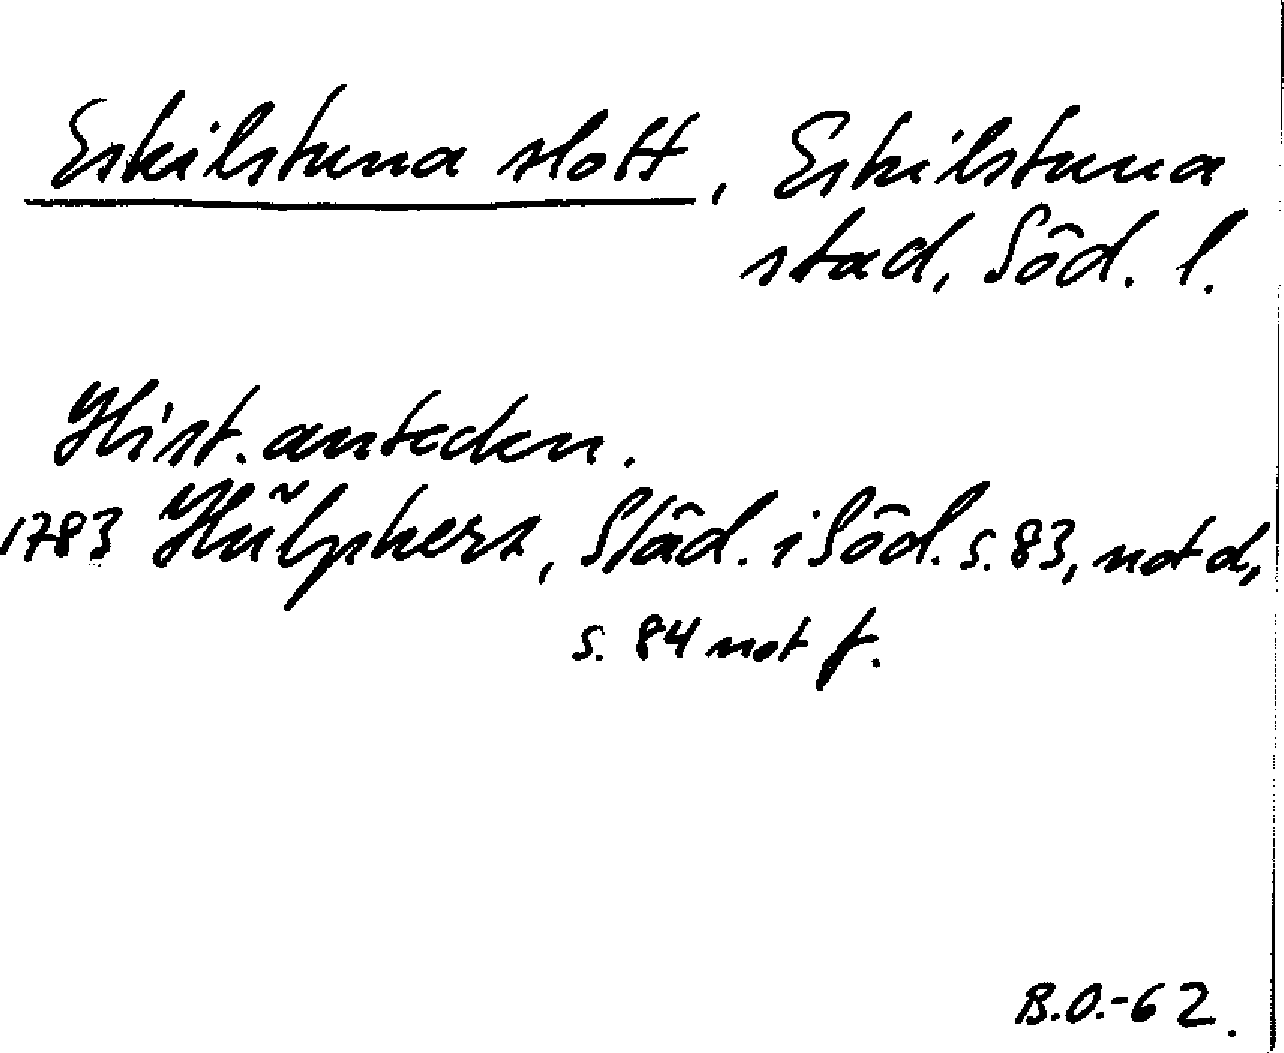 Eskilstuna slott, Eskilstuna
stad, Söd. l.
Hist. anteckn.
1783 Hülphers, Städ. i Söd. s. 83, not d,
s. 84 not f.
B.O.-62.